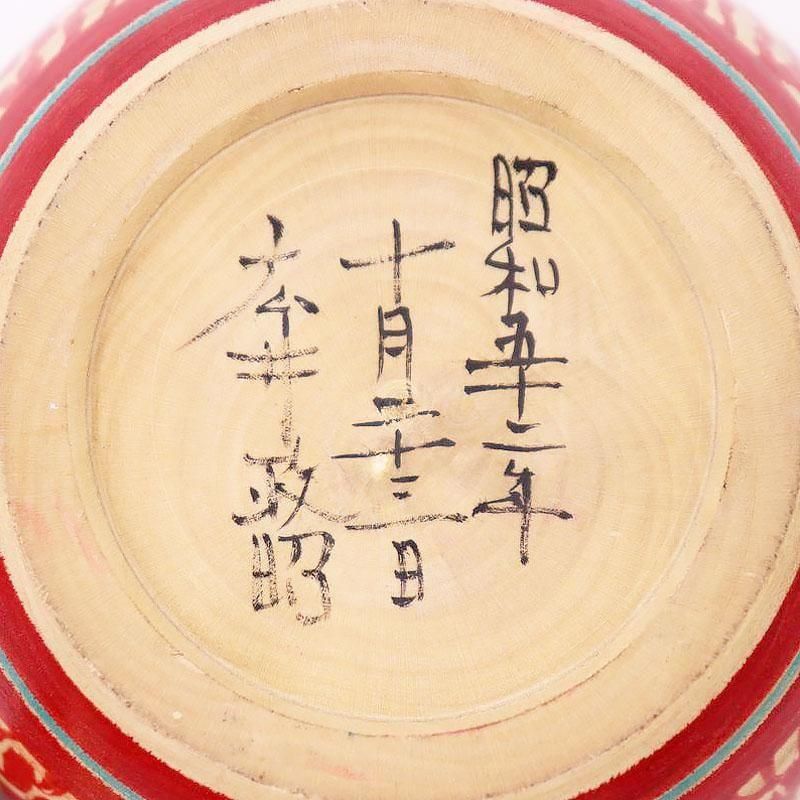 昭和五十二年
十月二十三日
政昭